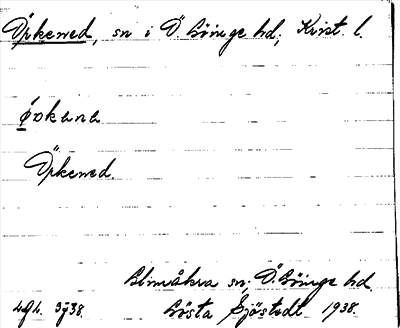 Örkened, sn i Ö. Göinge hd; Krist. l.
Örkened.
Glimåkra sn; Ö. Göinge hd.
Gösta Sjöstedt 1938.